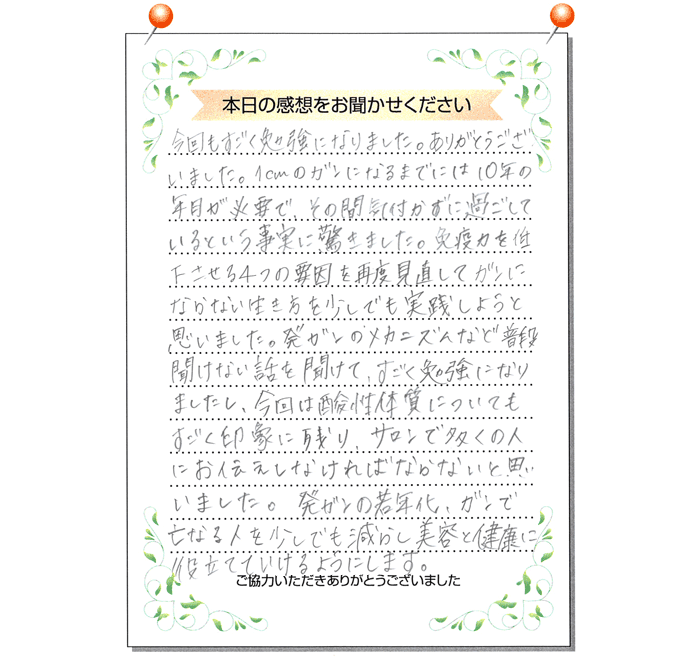 本日の感想をお聞かせください
今回もすごく勉強になりました。ありがとうござ
いました。1cmのガンになるまでには10年の
年月が必要で、その間気付かずに過ごして
いるという事実に驚きました。免疫力を低
下させる4つの要因を再度見直してガンに
ならない生き方を少しでも実践しようと
思いました。発ガンのメカニズムなど普段
聞けない話を聞けて、すごく勉強になり
ましたし、今回は酸性体質についても
すごく印象に残り、サロンで多くの人
にお伝えしなければならないと思
いました。発ガンの若年化、ガンで
亡なる人を少しでも減らし美容と健康に
役立てていけるようにします。
ご協力いただきありがとうございました